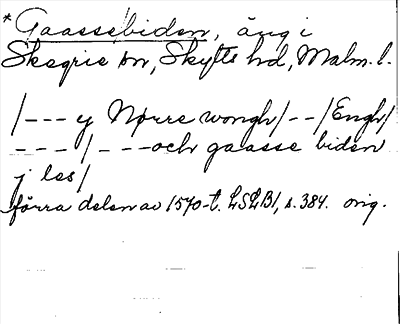 * Gaassebiden, äng i
Skegrie sn, Skytts hd, Malm. l.
/--- y Nørre wongh/--/Engh/
---/---och gaasse biden
j les/
förra delen av 1570-t. LSLB1, s. 384. orig.